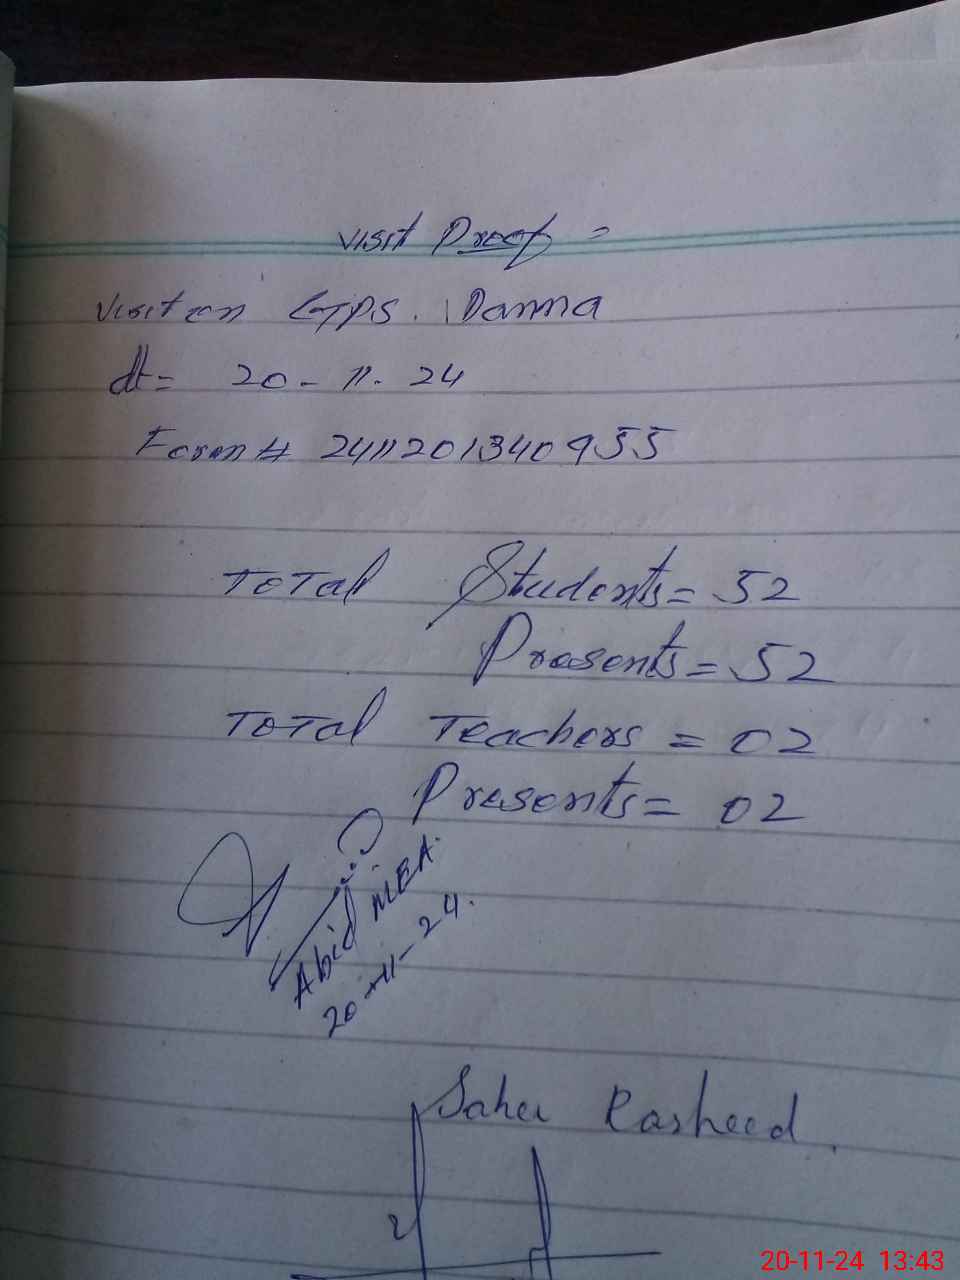 Visit Proof =
Visit on GPS. Danna
dt= 20-11-24
Form # 2411201340955
Total Students = 52
Presents = 52
Total Teachers = 02
Presents = 02
Abid MEA.
20-11-24.
Saher Rasheed.
20-11-24 13:43